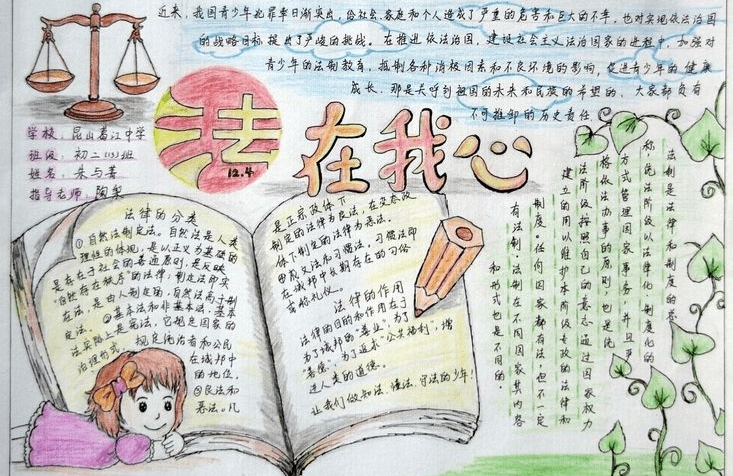 近来，我国青少年犯罪率日渐突出，给社会、家庭和个人造成了严重的危害和巨大的不幸，也对实现依法治国
的战略目标提出了严峻的挑战。在推进依法治国，建设社会主义法治国家的进程中，加强对
青少年的法制教育，抵制各种消极因素和不良环境的影响，促进青少年的健康
成长，那是关呼到祖国的未来和民族的希望的，大家都负有
不可推卸的历史责任。
学校：昆山春江中学
班级：初二(3)班
姓名：朱与菁
指导老师：陶
法
12.4
在我心
法律的分类
①自然法制定法。自然法是人类
理性的体现，是以正义为基础的
是存在于社会的普遍原则，是反映
"自然存在秩序"的法律，制定法即实
在法，是由人制定的，自然法高于制
定法。②基本法和非基本法。基本
法实际上是宪法，它规定国家的
治理形式，规定统治者和公民
在城邦中
的地位。
③良法和
恶法。凡
是正宗政体下
制定的法律为良法，在变态政
体下制定的法律为恶法。
④成文法和习惯法。习惯法即
在城邦中长期存在的习俗
法律的作用
法律的目的和作用在于
为了城邦的"善业"，为了
，为了追求"公共福利"，增
进人类的道德。
让我们做知法、懂法、守法的少年。
法制是法律和制度的总
称，统治阶级以法律化、制度化的
方式管理国家事务，并且严
格依法办事的原则，也是统
治阶级按照自己的意志通过国家权力
建立的用以维护本阶级专政的法律和
制度。任何国家都有法，但不一定
有法制，法制在不同国家其内容
和形式也是不同的。